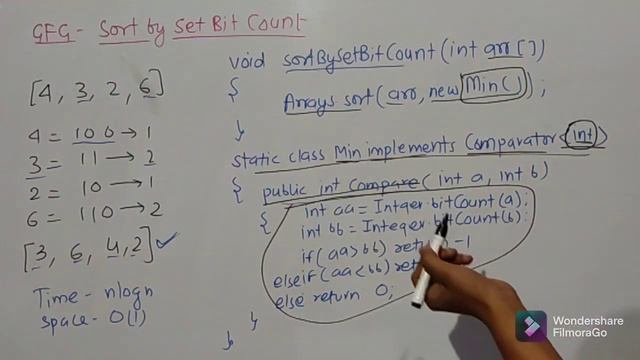 GFG - Sort by Set Bit Count
[4, 3, 2, 6]
4 = 100 → 1
3 = 11 → 2
2 = 10 → 1
6 = 110 → 2
[3, 6, 4, 2] ✓
Time - nlogn
space - O(1)
void sortBySetBitCount(int arr[])
{
Arrays sort(arr, new Min());
}
static class Min implements Comparator<int>
{ public int Compare(int a, int b)
{ int aa = Intger.bitCount(a);
int bb = Integer.bitCount(b);
if(aa>bb) -1
elseif(aa<bb)
else return 0;
}
}
Wondershare
FilmoraGo